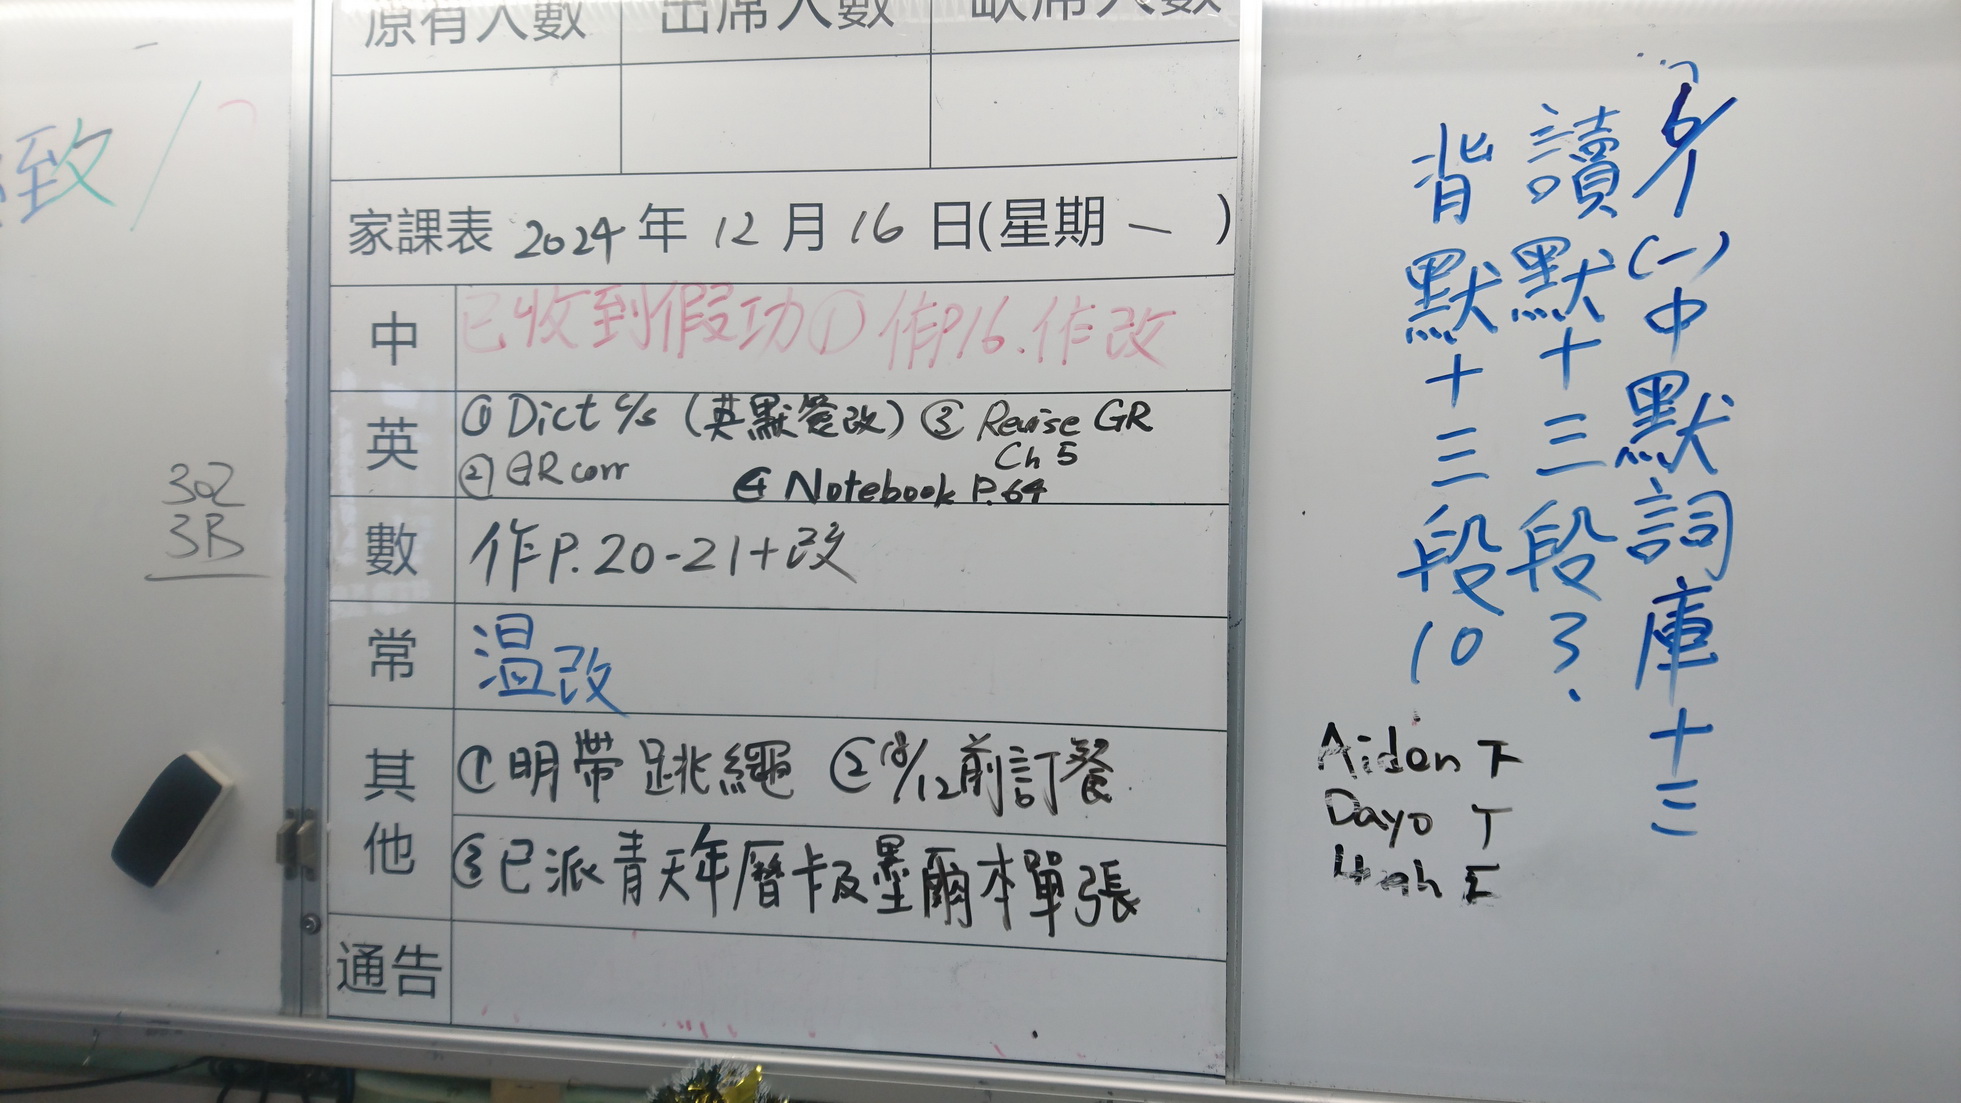 致
302
3B
原有人數 出席人數 缺席人數
家課表 2024 年 12 月 16 日(星期 一 )
中 已收到假功① 作P16.作改
英 ① Dict c/s (英默簽改) ③ Revise GR
Ch 5
② GR corr ④ Notebook P.64
數 作P.20-21+改
常 溫改
其他 ①明帶跳繩 ②18/12前訂餐
③已派青天年曆卡及墨爾本單張
通告
6/1(一)中默詞庫十三
讀默十三段3.
背默十三段10
Aiden T
Dayo T